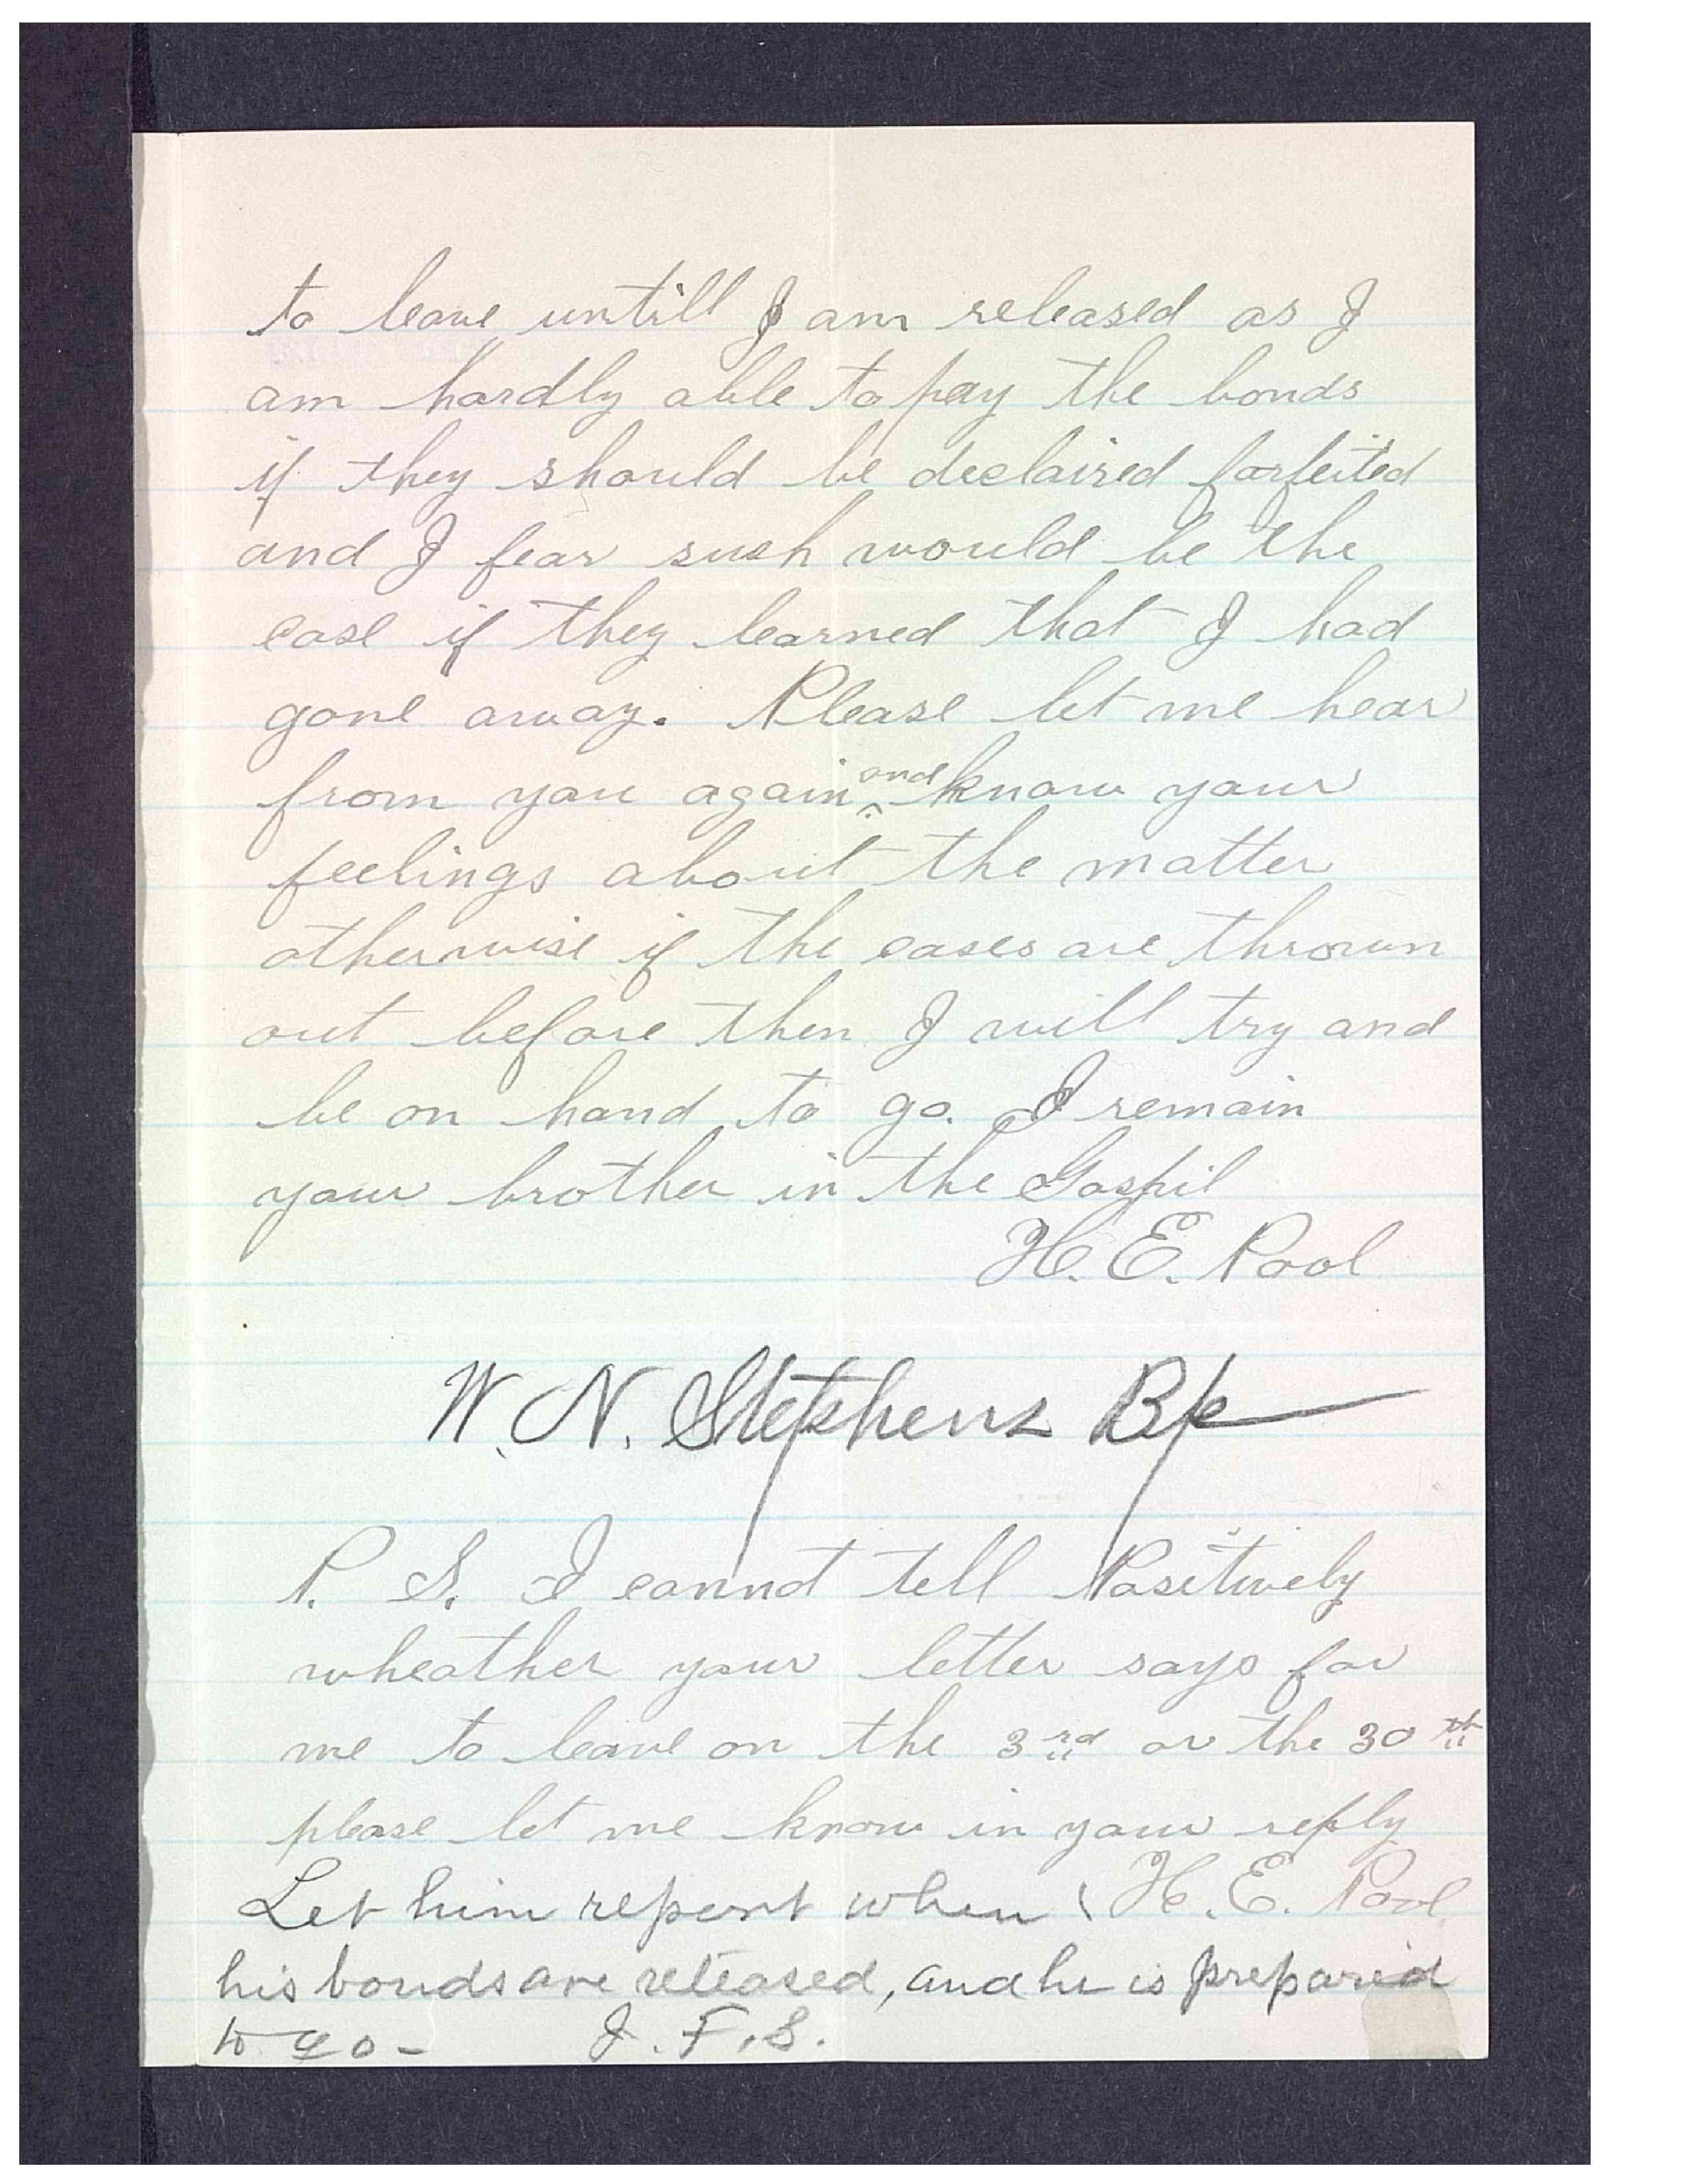 to leave untill I am released as I
am hardly able to pay the bonds
if they should be declaired forfeited
and I fear such would be the
case if they learned that I had
gone away. Please let me hear
from you again and know your
feelings about the matter
otherwise if the cases are thrown
out before then I will try and
be on hand to go. I remain
your brother in the Gospil
H. E. Pool
W. N. Stephens Bp
P. S. I cannot tell Positively
wheather your letter says for
me to leave on the 3rd or the 30th
please let me know in your reply
H. E. Pool
Let him report when
his bonds are released, and he is prepared
to go - J. F. S.